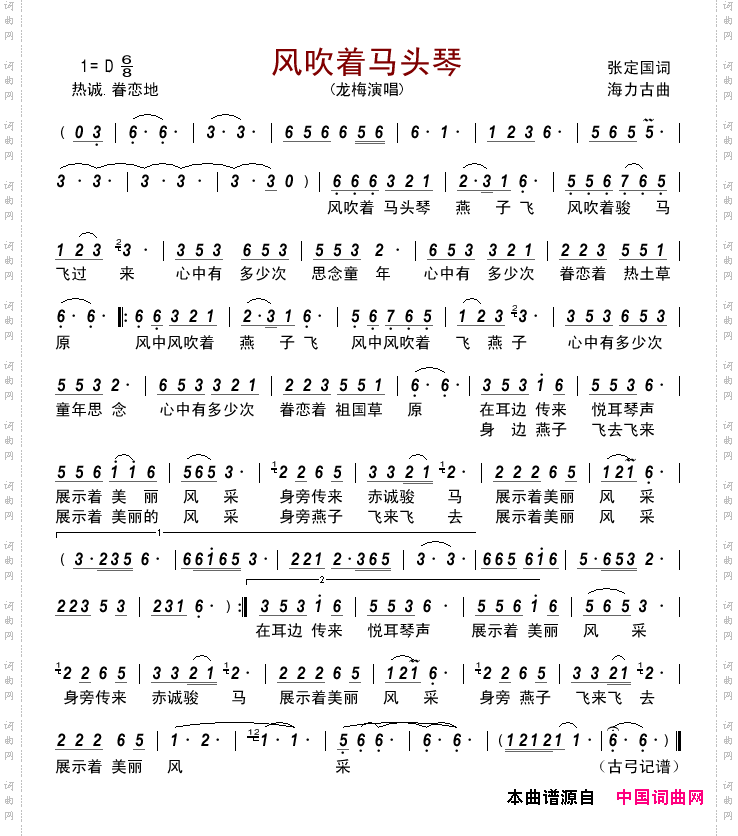 风吹着马头琴
1=D 6/8
张定国词
热诚.眷恋地
(龙梅演唱)
海力古曲
( 0 3 | 6· 6· | 3· 3· | 6 5 6 6 5 6 5 6 | 6· 1· | 1 2 3 6· | 5 6 5 5· |
3· 3· | 3· 3· | 3· 3 0 ) | 6 6 6 3 2 1 | 2·3 1 6· | 5 5 6 7 6 5 |
风吹着 马头琴 燕 子 飞 风吹着骏 马
1 2 3 2 3· | 3 5 3 6 5 3 | 5 5 3 2· | 6 5 3 3 2 1 | 2 2 3 5 5 1 |
飞过 来 心中有 多少次 思念童 年 心中有 多少次 眷恋着 热土草
6· 6· ‖: 6 6 3 2 1 | 2·3 1 6· | 5 6 7 6 5 | 1 2 3 2 3· | 3 5 3 6 5 3 |
原 风中风吹着 燕 子 飞 风中风吹着 飞 燕 子 心中有多少次
5 5 3 2· | 6 5 3 3 2 1 | 2 2 3 5 5 1 | 6· 6· | 3 5 3 1 6 | 5 5 3 6· |
童年思 念 心中有多少次 眷恋着 祖国草 原 在耳边 传来 悦耳琴声
身 边 燕子 飞去飞来
5 5 6 1 1 6 | 5 6 5 3· | 1 2 2 6 5 | 3 3 2 1 1 2· | 2 2 2 6 5 | 1 2 1 6· |
展示着 美 丽 风 采 身旁传来 赤诚骏 马 展示着美丽 风 采
展示着 美丽的 风 采 身旁燕子 飞来飞 去 展示着 美丽 风 采
1
( 3·2 3 5 6· | 6 6 1 6 5 3· | 2 2 1 2·3 6 5 | 3· 3· | 6 6 5 6 1 6 | 5·6 5 3 2· |
2
2 2 3 5 3 | 2 3 1 6· ) :‖ 3 5 3 1 6 | 5 5 3 6· | 5 5 6 1 6 | 5 6 5 3· |
在耳边 传来 悦耳琴声 展示着 美丽 风 采
1 2 2 6 5 | 3 3 2 1 1 2· | 2 2 2 6 5 | 1 2 1 6· | 1 2 2 6 5 | 3 3 2 1 1 2· |
身旁传来 赤诚骏 马 展示着美丽 风 采 身旁 燕子 飞来飞 去
2 2 2 6 5 | 1· 2· | 12 1· 1· | 5 6· 6· | 6· 6· | ( 1 2 1 2 1 1· | 6· 6· ) ‖
展示着 美丽 风 采 (古弓记谱)
本曲谱源自 中国词曲网
词曲网
词曲网
词曲网
词曲网
词曲网
词曲网
词曲网
词曲网
词曲网
词曲网